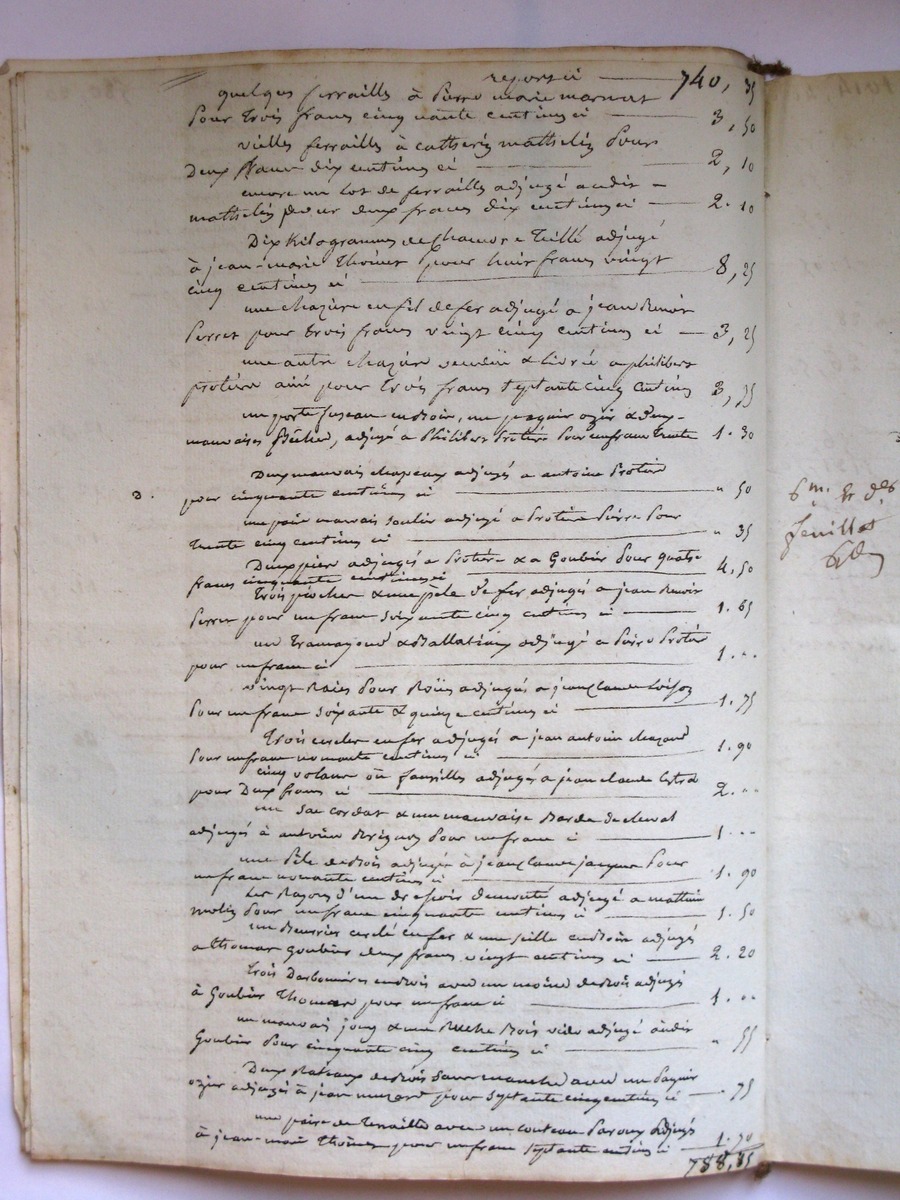 reporté ci — 740, 35
quelques ferrailles à Pierre marie
pour trois francs cinquante centimes ci — 3, 50
vielles ferrailles à cattherin matthelin pour
Deux francs dix centimes ci — 2, 10
encore un lot de ferrailles adjugé audit
matthelin pour deux francs dix centimes ci — 2. 10
Dix Kilogrammes de Chanvre Teillé adjugé
à jean-marie Thoinet pour huit francs vingt
cinq centimes ci — 8, 25
une chazière en fil de fer adjugé a jean Benoit
Perret pour trois francs vingt cinq centimes ci — 3, 25
une autre chazière vendüe & livrée a philibert
protière ainé pour trois francs septante cinq centimes 3, 75
un porte fuseau en bois, un ozier & deux
mauvaises adjugé a Philibert Protière pour un franc trente 1. 30
Deux mauvais chapeaux adjugés a antoine Protière
D.
pour cinquante centimes ci — " 50
une paire mauvais soulier adjugé a Protière Pierre pour
trente cinq centimes ci — " 35
Deux adjugés a Protière & a Goubier pour quatre
francs cinquante centimes ci — 4, 50
Trois pioches & une pèle de fer adjugés a jean Benoit
Perret pour un franc soixante cinq centimes ci — 1. 65
un & adjugé a Pierre Protière
pour un franc ci — 1. "
vingt Raies pour Roües adjugés a jean Claude
pour un franc soixante & quinze centimes ci — 1. 75
Trois cercles en fer adjugés a jean antoine
pour un franc nonante centimes ci — 1. 90
cinq volans ou faucilles adjugés a jean claude
pour Deux francs ci — 2. "
un sac cordat & une mauvaise Barde de cheval
adjugés à antoine pour un franc ci — 1. "
une Pèle de Bois adjugée à jean Claude jacquet pour
un franc nonante centimes ci — 1. 90
Les Rayons d'un dressoir démonté adjugé a mathieu
pour un franc cinquante centimes ci — 1. 50
un Beurrier cerclé en fer & une seille en Bois adjugés
a thomas Goubier deux francs vingt centimes ci — 2. 20
Trois en bois avec un moine de bois adjugé
à Goubier Thomas pour un franc ci — 1. "
un mauvais joug & une Ruche Bois vide adjugé audit
Goubier pour cinquante cinq centimes ci — " 55
Deux Rateaux de Bois sans manche avec un Panier
ozier adjugés à jean pour septante cinq centimes ci — " 75
une paire de Tenailles avec un couteau adjugés
à jean-marie Thoinet pour un franc septante centimes ci — 1. 70
788, 85
6m. & der
feuillet